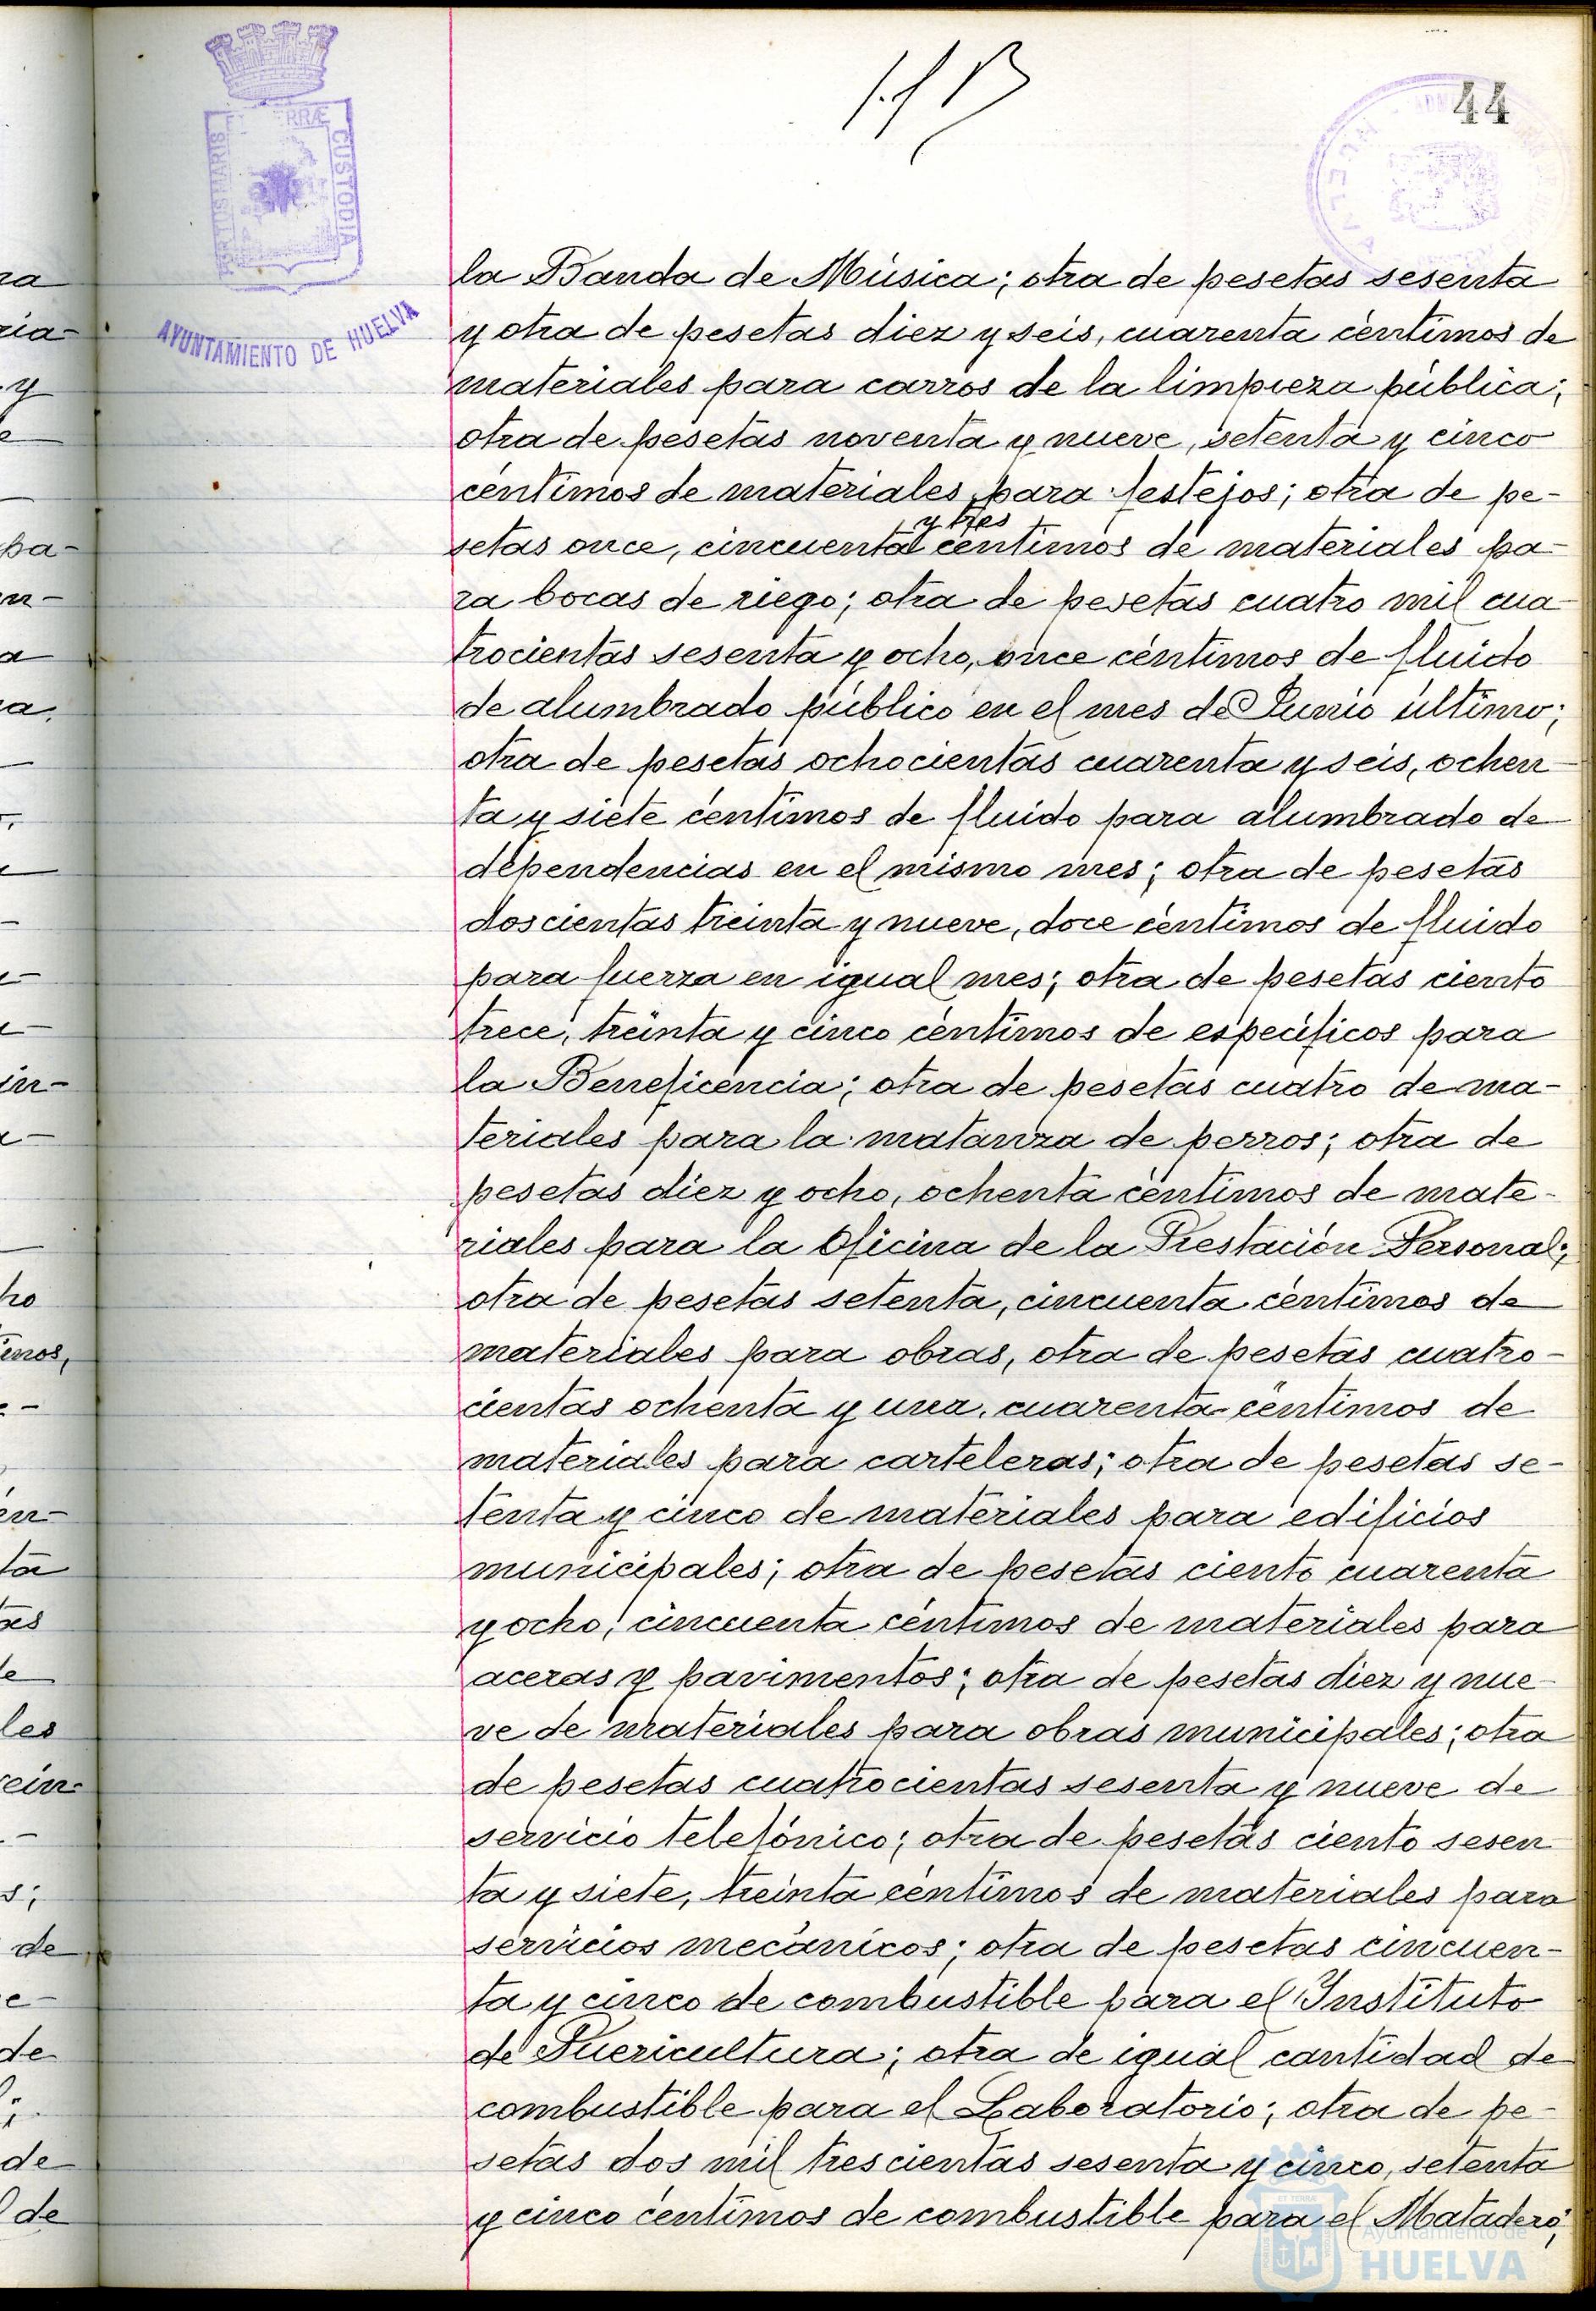 44
PORTUS MARIS
ET TERRÆ
CUSTODIA
AYUNTAMIENTO DE HUELVA
la Banda de Música; otra de pesetas sesenta
y otra de pesetas diez y seis, cuarenta céntimos de
materiales para carros de la limpieza pública;
otra de pesetas noventa y nueve, setenta y cinco
céntimos de materiales para festejos; otra de pe-
setas once, cincuenta y tres céntimos de materiales pa-
ra bocas de riego; otra de pesetas cuatro mil cua-
trocientas sesenta y ocho, once céntimos de fluido
de alumbrado público en el mes de Junio último;
otra de pesetas ochocientas cuarenta y seis, ochen-
ta y siete céntimos de fluido para alumbrado de
dependencias en el mismo mes; otra de pesetas
doscientas treinta y nueve, doce céntimos de fluido
para fuerza en igual mes; otra de pesetas ciento
trece, treinta y cinco céntimos de específicos para
la Beneficencia; otra de pesetas cuatro de ma-
teriales para la matanza de perros; otra de
pesetas diez y ocho, ochenta céntimos de mate-
riales para la Oficina de la Prestación Personal;
otra de pesetas setenta, cincuenta céntimos de
materiales para obras, otra de pesetas cuatro-
cientas ochenta y una, cuarenta céntimos de
materiales para carteleras; otra de pesetas se-
tenta y cinco de materiales para edificios
municipales; otra de pesetas ciento cuarenta
y ocho, cincuenta céntimos de materiales para
aceras y pavimentos; otra de pesetas diez y nue-
ve de materiales para obras municipales; otra
de pesetas cuatrocientas sesenta y nueve de
servicio telefónico; otra de pesetas ciento sesen-
ta y siete, treinta céntimos de materiales para
servicios mecánicos; otra de pesetas cincuen-
ta y cinco de combustible para el Instituto
de Puericultura; otra de igual cantidad de
combustible para el Laboratorio; otra de pe-
setas dos mil trescientas sesenta y cinco, setenta
y cinco céntimos de combustible para el Matadero;
Ayuntamiento de
HUELVA